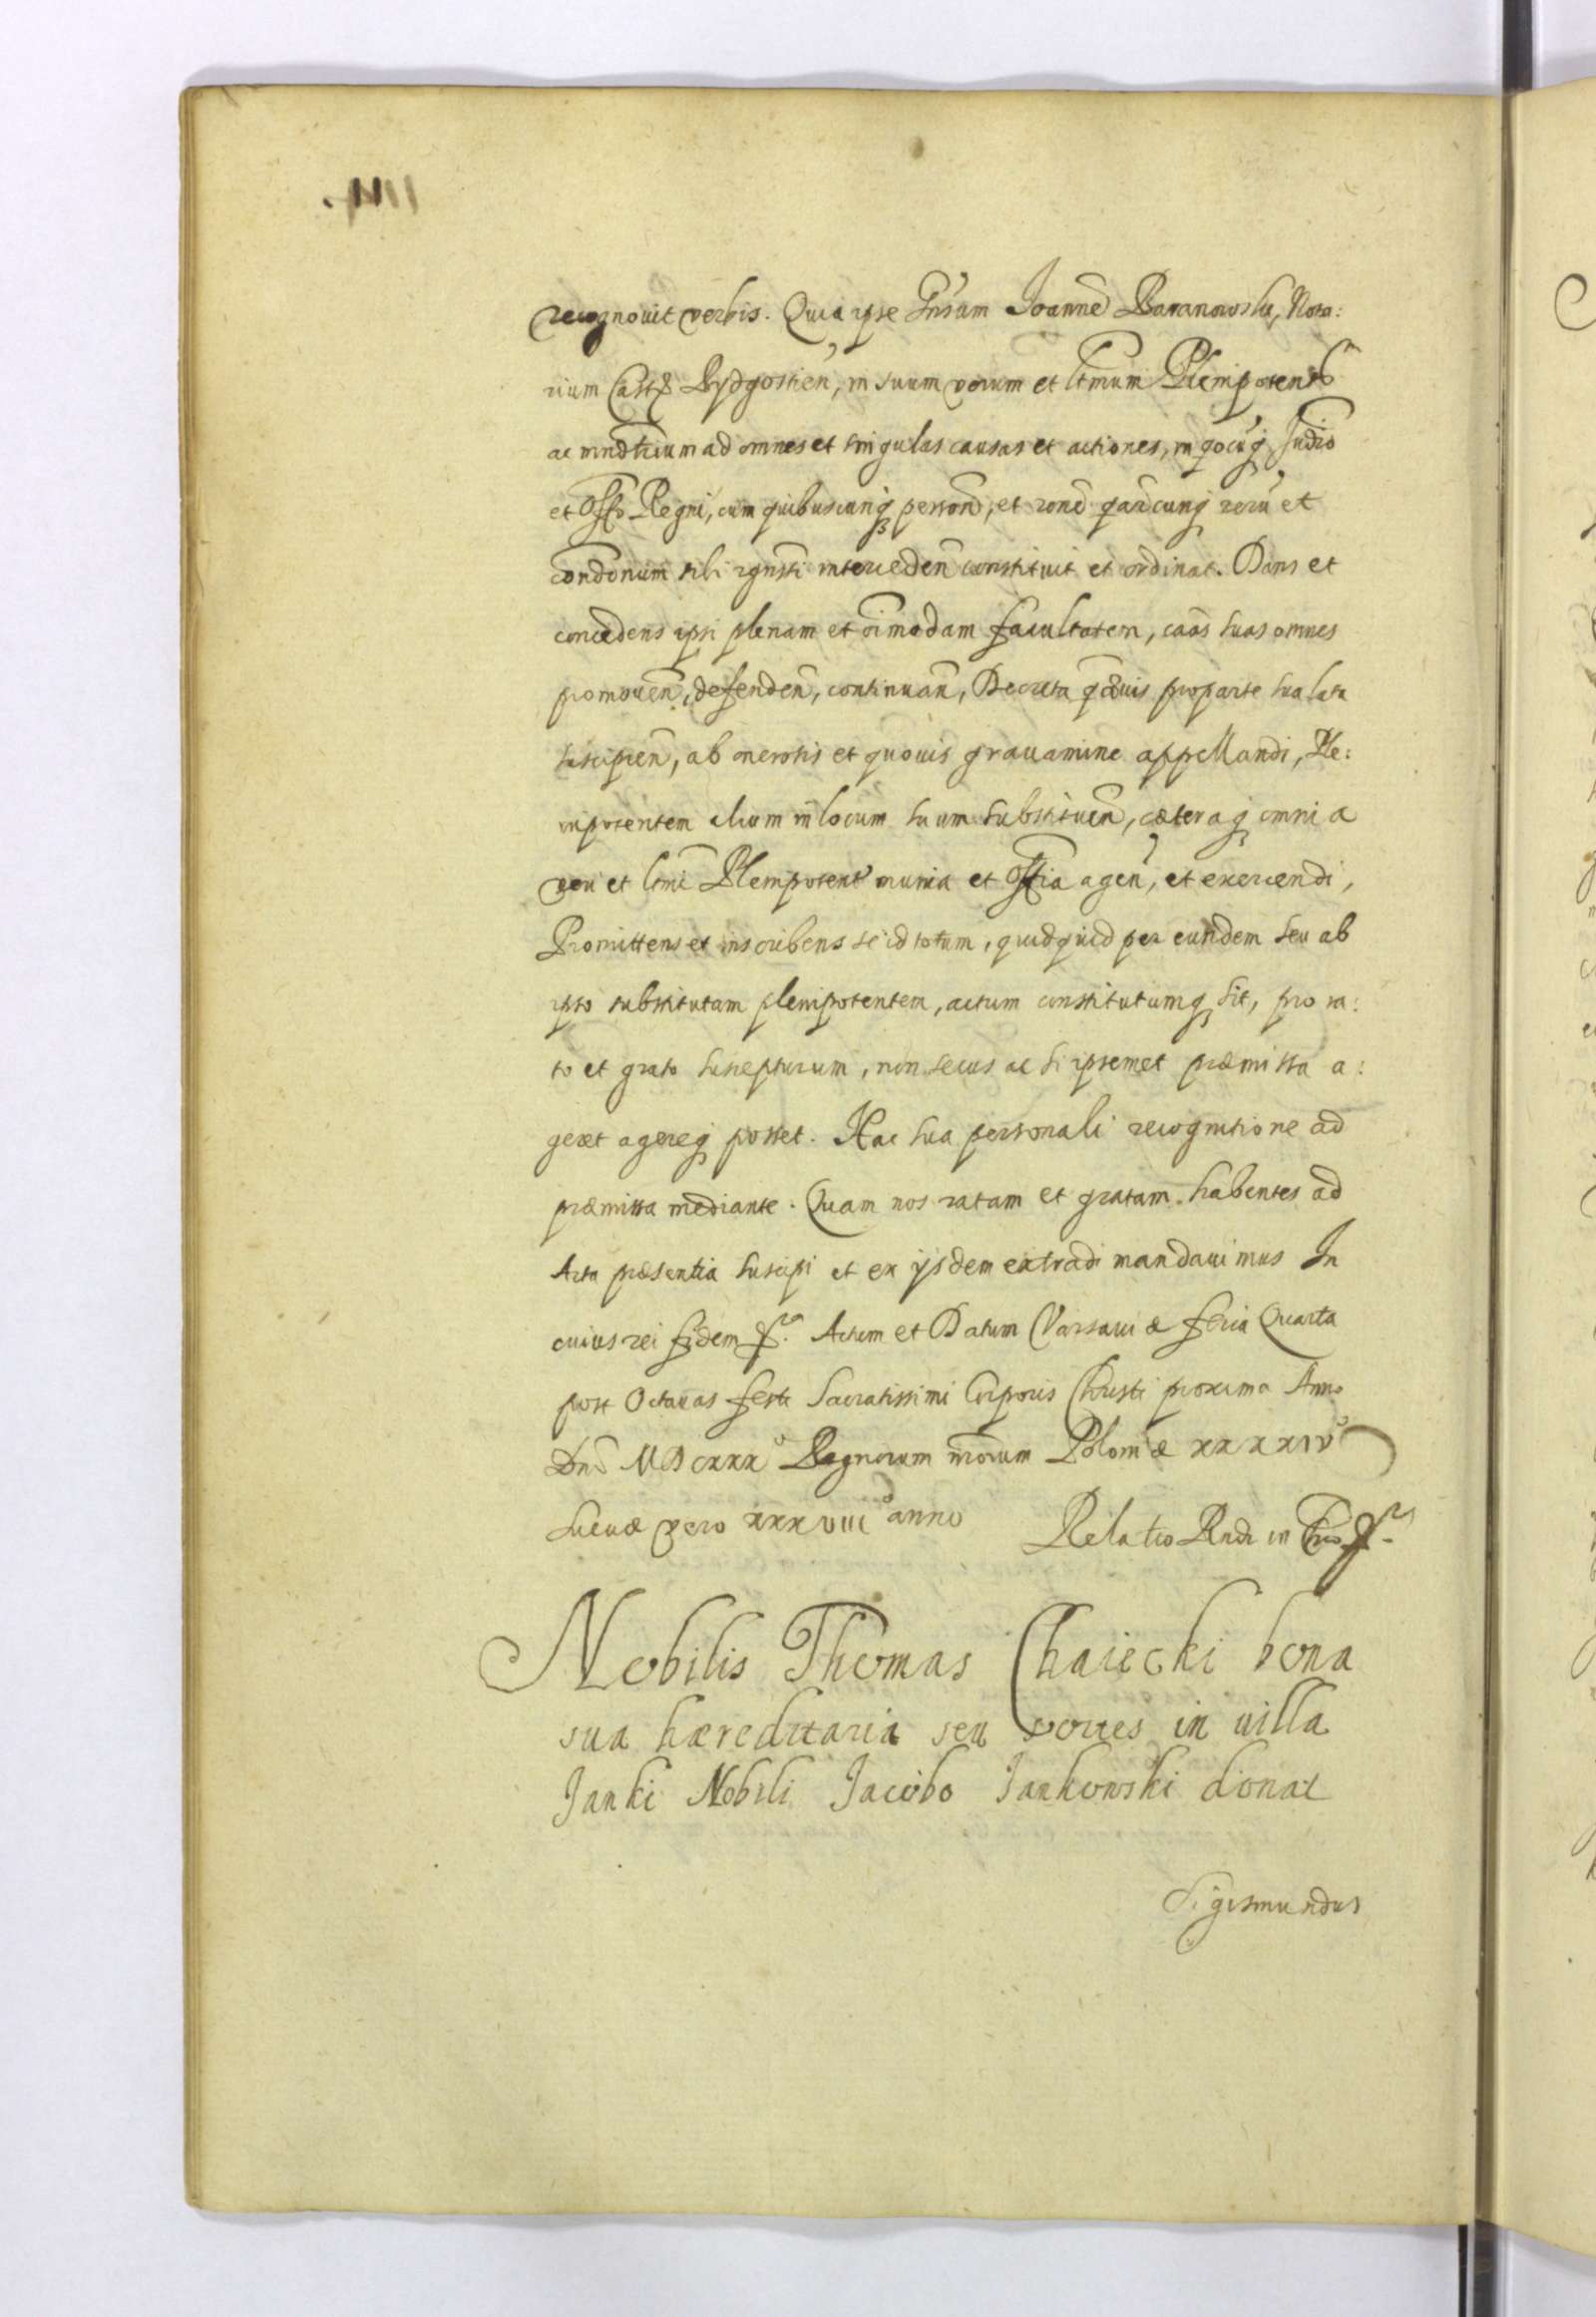 recognovit verbis. Quia ipse Gnsum Joanne Baranowski, Nota:
rium Castr Bydgostien, in suum verum et ltmum Plenipotente
ac mndtrium ad omnes et singulas causas et actiones, in qocuq Judio
et Offo Regni, cum quibuscunq person, et rone qarcunq reru et
condonum sibi intereden constituit et ordinat. Dans et
concedens ipsi plenam et oimodam facultatem, caas suas omnes
promouen, defenden, continuan, Decreta quis pro parte sua lata
suscipien, ab onerosis et quouis grauamine appellandi, Ple:
nipotentem alium in locum suum substituen, cæteraq omnia
veri et ltmi Plenipotent munia et offia agen, et exercendi,
Promittens et inscribens se id totum, quidquid per eundem seu ab
ipso substitutum plenipotentem, actum constitutumq sit, pro ra:
to et grato suscepturum, non secus ac si ipsemet præmissa a:
geret agereq posset. Hac sua personali recognitione ad
præmissa mediante. Quam nos ratam et gratam habentes ad
Acta præsentia suscipi et ex ijsdem extradi mandauimus In
cuius rei fidem Actum et Datum Varsauiæ feria Quarta
post Octauas festi Sacratissimi Corporis Christi proxima Anno
Dni MDCXXX Regnorum nrorum Poloniæ XXXXIV
Sueuæ vero XXXVIII anno Relatio Rndi in Chro
Nobilis Thomas Chaiecki bona
sua hæreditaria seu sortes in uilla
Janki Nobili Jacobo Jankowski donat
Sigismundus